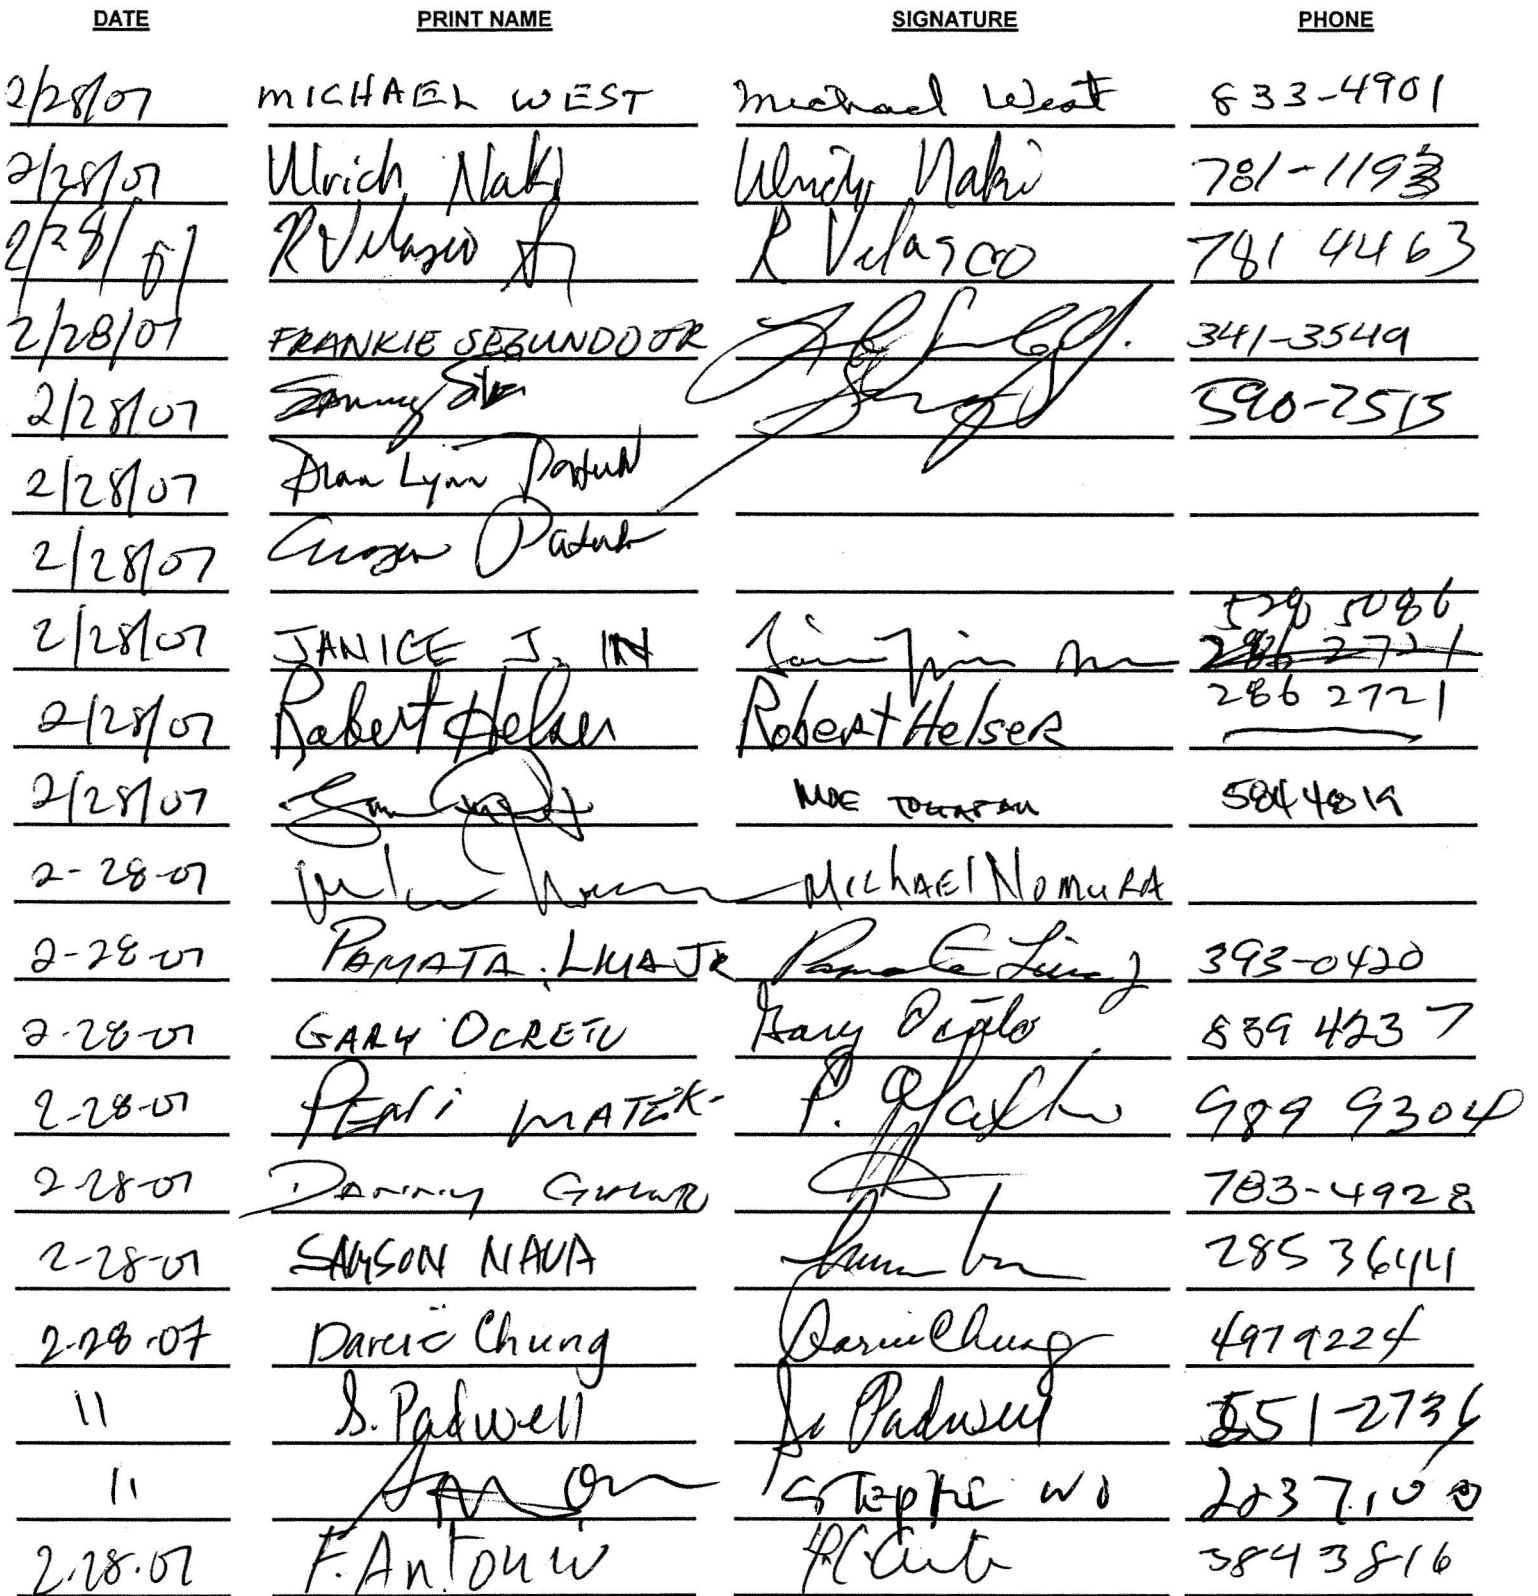 DATE PRINT NAME SIGNATURE PHONE
2/28/07 MICHAEL WEST Michael West 833-4901
2/28/07 Ulrich Naki Ulrich Naki 781-1193
2/28/07 R Velasco Jr R Velasco 781 4463
2/28/07 FRANKIE SEGUNDO JR 341-3549
2/28/07 Sammy 590-2515
2/28/07 Lynn
2/28/07
528 5086
2/28/07 JANICE J. IN 286 2721
2/28/07 Robert Helser Robert Helser 286 2721
2/28/07 MOE
2-28-07 Michael Nomura
2-28-07 PAMATA. LIUA JR 393-0420
2-28-07 GARY OCRETO Gary Ocreto 839 4237
2-28-07 PENI MATEK- 989 9304
2-28-07 DANNY 783-4928
2-28-07 SAMSON NAUA 285 3644
2-28-07 Darcie Chung Darcie Chung 4979224
11 S. Padwell S. Padwell 551-2736
11 STEphe WO
2.28.07 F. Antonio 384 3816